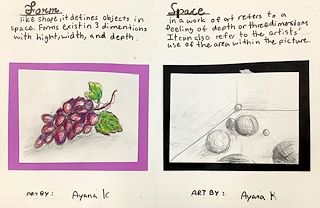 Form
like shape, it defines objects in
space. Forms exist in 3 dimentions
with hight, width, and depth.
ART BY: Ayana K
Space
in a work of art refers to a
feeling of depth or three dimensions
It can also refer to the artists'
use of the area within the picture.
ART BY: Ayana K